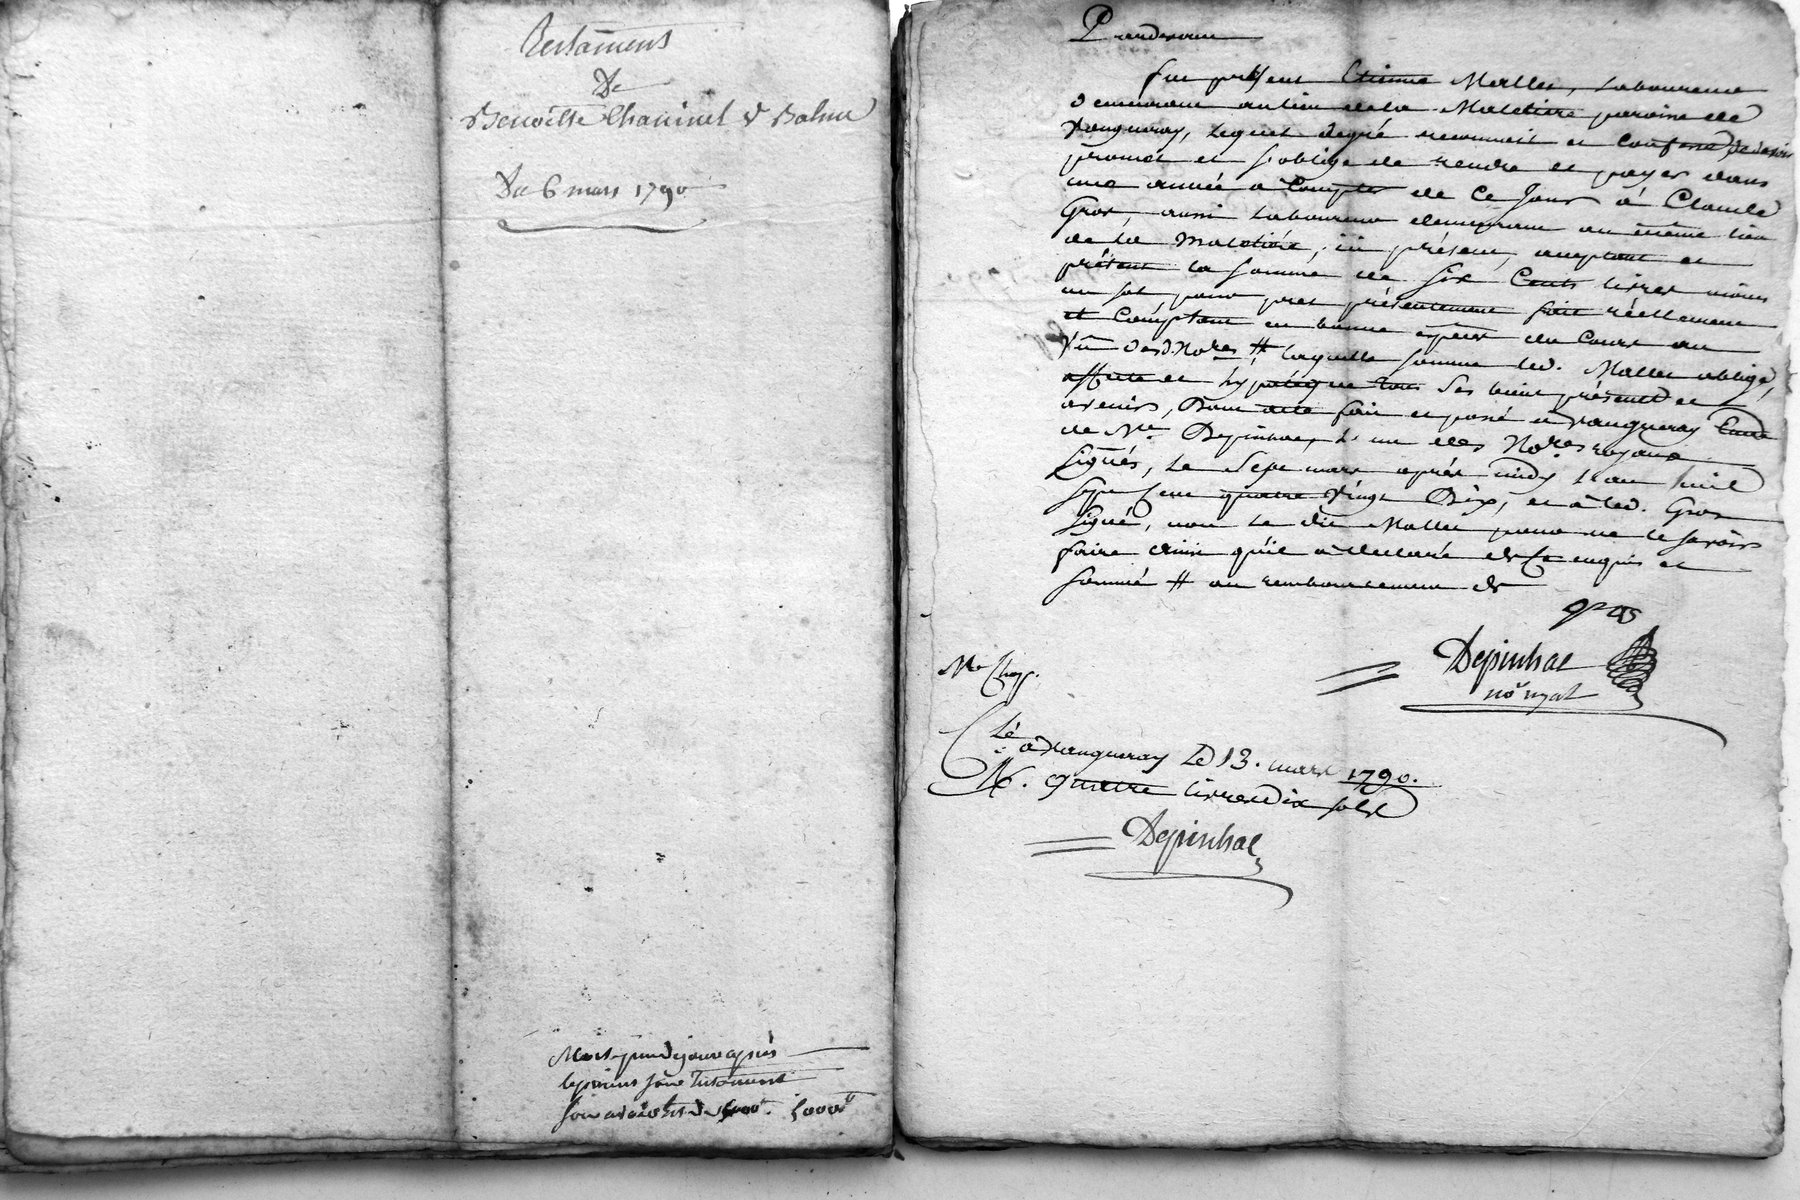 Testament
De
Benoitte Chauvinet & Balme
Du 6 mars 1790
Mort peu de jours après
le présent son Testament
5000ᵗ
Pardevant
fut présent Etienne Mallet, Laboureur
demeurant au lieu de la Malotiere paroisse de
Vaugneray, lequel degré reconnoit et confesse devoir
promet et s'oblige de rendre et payer dans
une année a Compter de Ce Jour à Claude
Gros, aussi Laboureur demeurant au même lieu
de la Malotiére, ici présent, acceptant et
prétant la somme de six Cents livres moins
un sol, pour pret présentement fait réellement
et Comptant en bonne espèces du Cours au
vû desd. Nores # laquelle somme led. Mallet obligé,
affecte et hypoteque tous ses biens présents et
avenirs, Dont acte fait et passé a Vaugneray Etude
de Me Depinhac, L'un des Nores. royaux
signés, le sept mars après midy l'an mil
sept Cent quatre vingt Dix, et à led. Gros
signé, non le dit Mallet pour ne le savoir
faire ainsi qu'il a declaré de Ce enquis et
sommé # au remboursement de
gros
Depinhac
nore royal
Me
Clé
à Vaugneray Le 13. mars 1790.
R. quatre livres dix sols
Depinhac